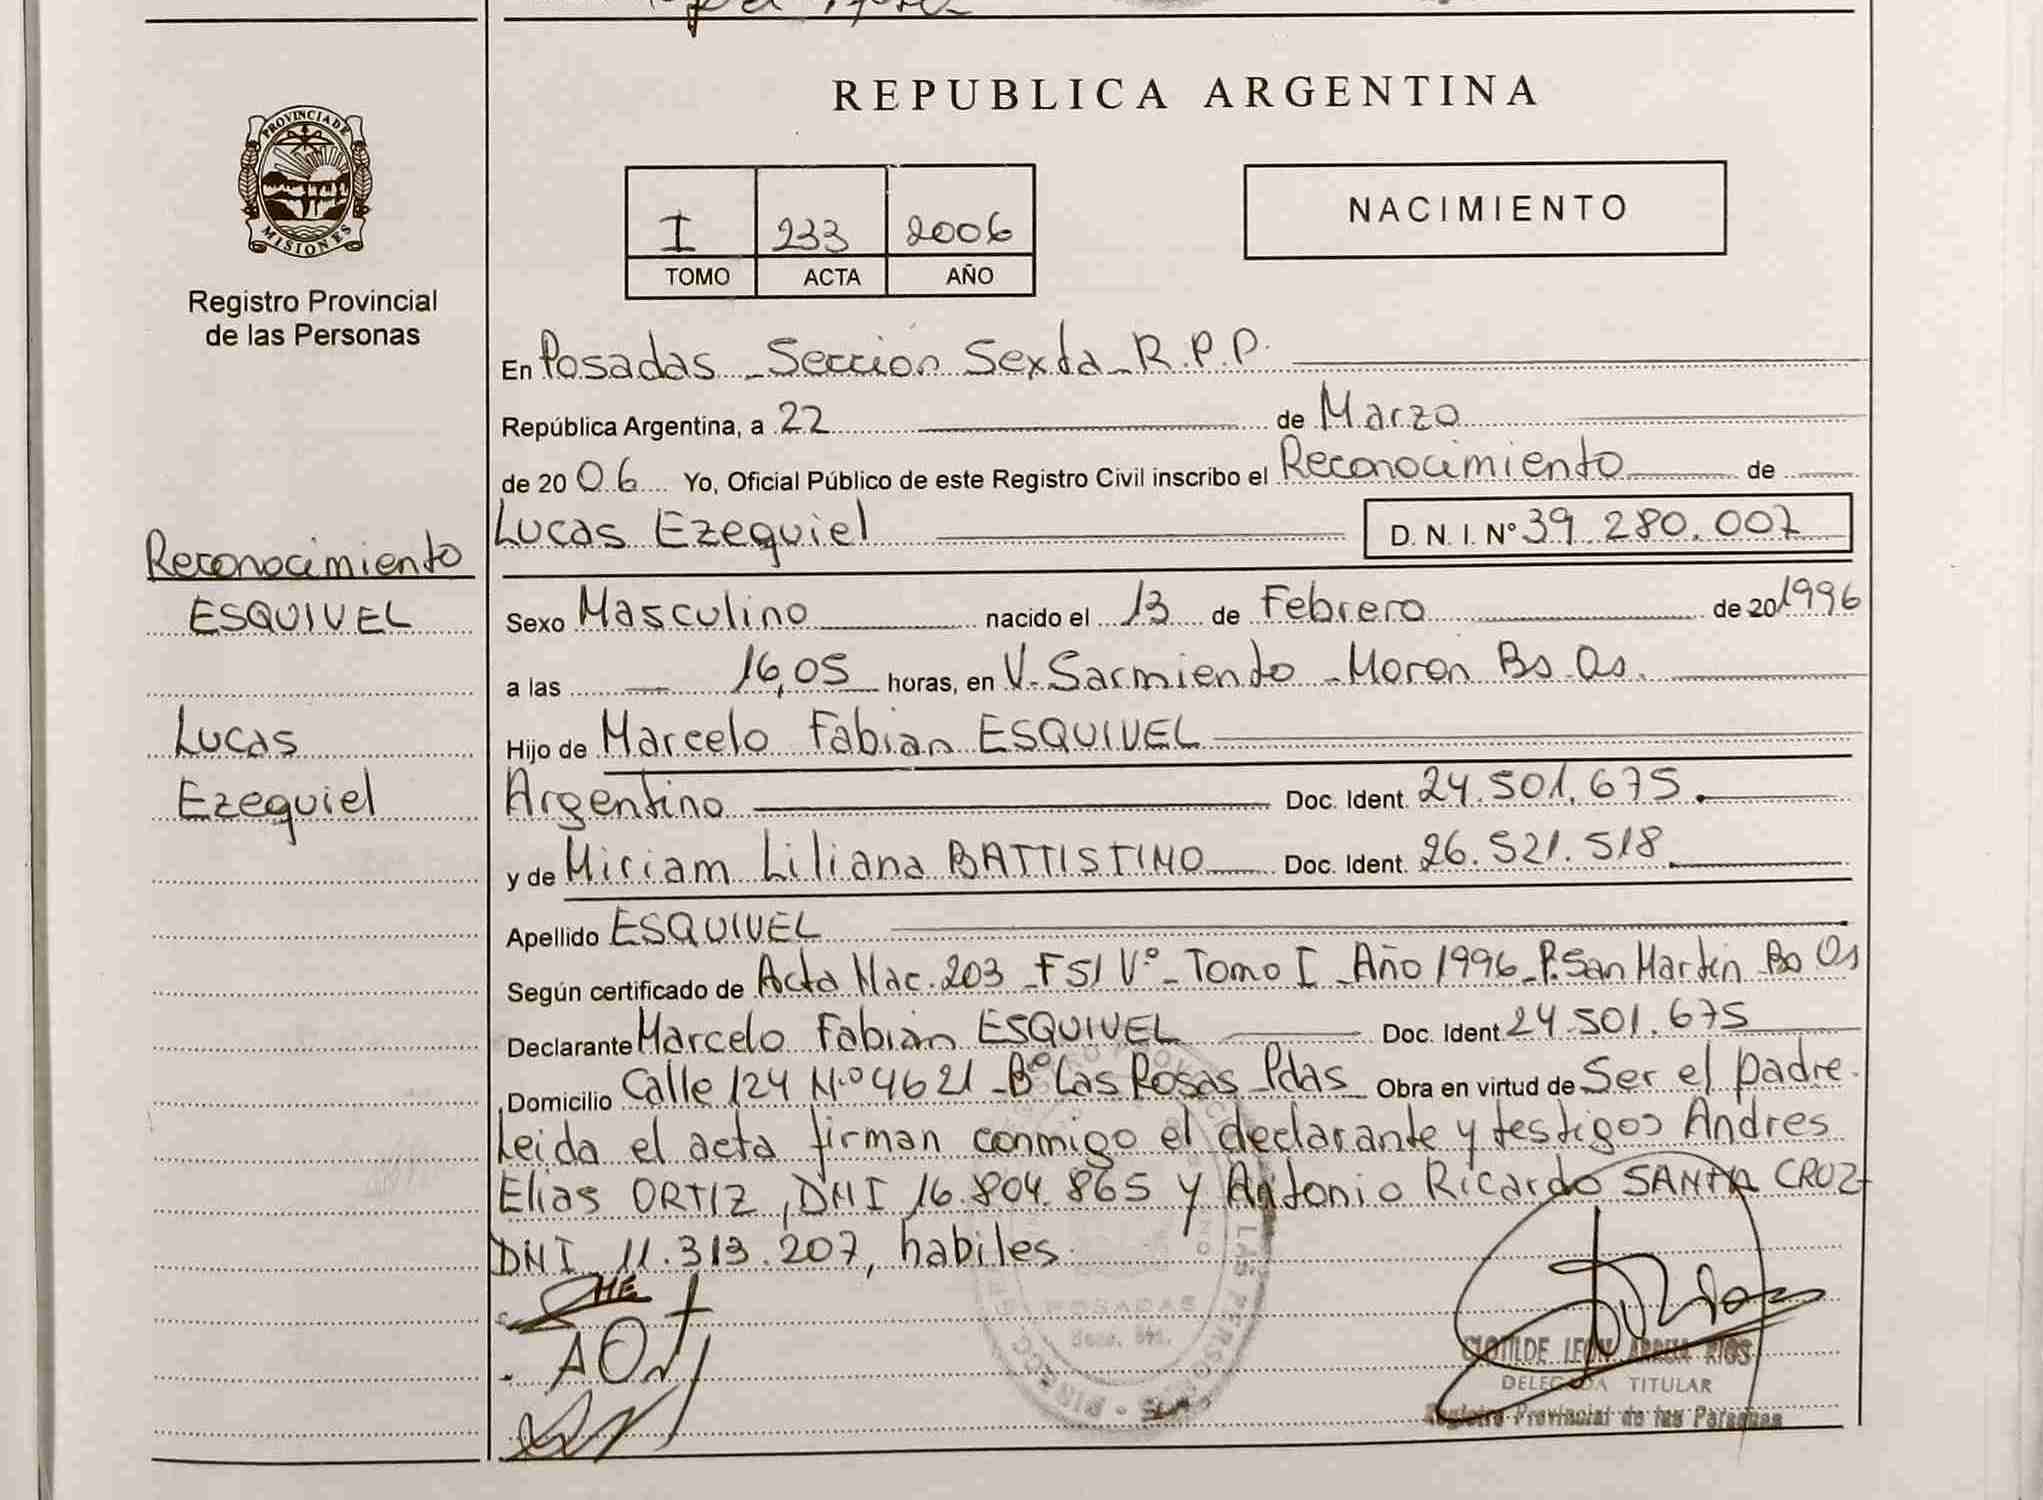 REPUBLICA ARGENTINA
PROVINCIA DE
MISIONES
Registro Provincial
de las Personas
I 233 2006
TOMO ACTA AÑO
NACIMIENTO
En Posadas - Sección Sexta - R.P.P.
República Argentina, a 22 de Marzo
de 2006 Yo, Oficial Público de este Registro Civil inscribo el Reconocimiento de
Lucas Ezequiel D. N. I. Nº 39.280.007
Reconocimiento
ESQUIVEL
Lucas
Ezequiel
Sexo Masculino nacido el 13 de Febrero de 201996
a las 16,05 horas, en V. Sarmiento - Moron Bs. As.
Hijo de Marcelo Fabian ESQUIVEL
Argentino Doc. Ident. 24.501.675.
y de Miriam Liliana BATTISTINO Doc. Ident. 26.521.518.
Apellido ESQUIVEL
Según certificado de Acta Nac. 203 - F51 Vº - Tomo I - Año 1996 - P. San Martin Bs As
Declarante Marcelo Fabian ESQUIVEL Doc. Ident. 24.501.675
Domicilio Calle 124 N.º 4621 - Bº Las Rosas - Pdas Obra en virtud de Ser el padre.
Leida el acta firman conmigo el declarante y testigos Andres
Elias ORTIZ, DNI 16.804.865 y Antonio Ricardo SANTA CRUZ
DNI 11.313.207, habiles.
POSADAS
Secc. 6ta.
CLOTILDE LEON RIOS
DELEGADA TITULAR
Registro Provincial de las Personas